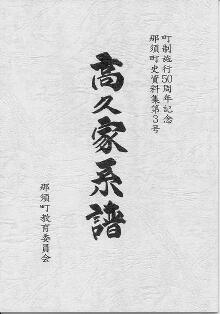 町制施行50周年記念
那須町史資料集第3号
高久家系譜
那須町教育委員会